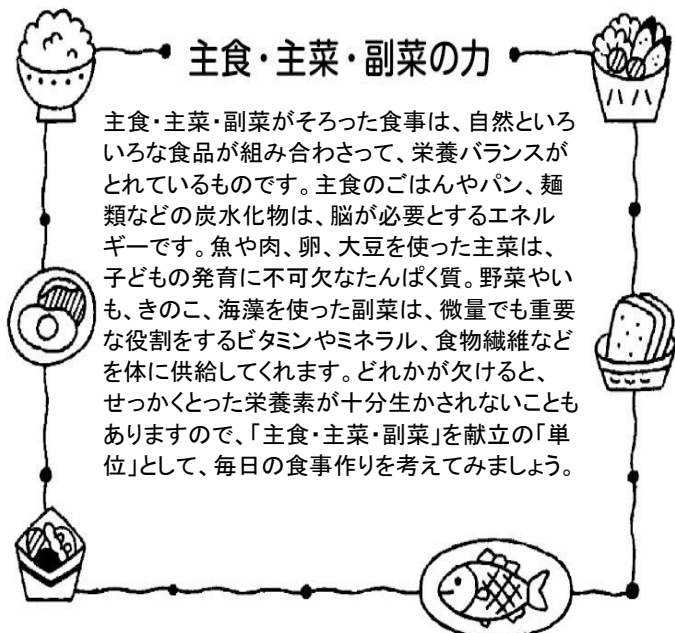 主食・主菜・副菜の力
主食・主菜・副菜がそろった食事は、自然といろ
いろな食品が組み合わさって、栄養バランスが
とれているものです。主食のごはんやパン、麺
類などの炭水化物は、脳が必要とするエネル
ギーです。魚や肉、卵、大豆を使った主菜は、
子どもの発育に不可欠なたんぱく質。野菜やい
も、きのこ、海藻を使った副菜は、微量でも重要
な役割をするビタミンやミネラル、食物繊維など
を体に供給してくれます。どれかが欠けると、
せっかくとった栄養素が十分生かされないことも
ありますので、「主食・主菜・副菜」を献立の「単
位」として、毎日の食事作りを考えてみましょう。